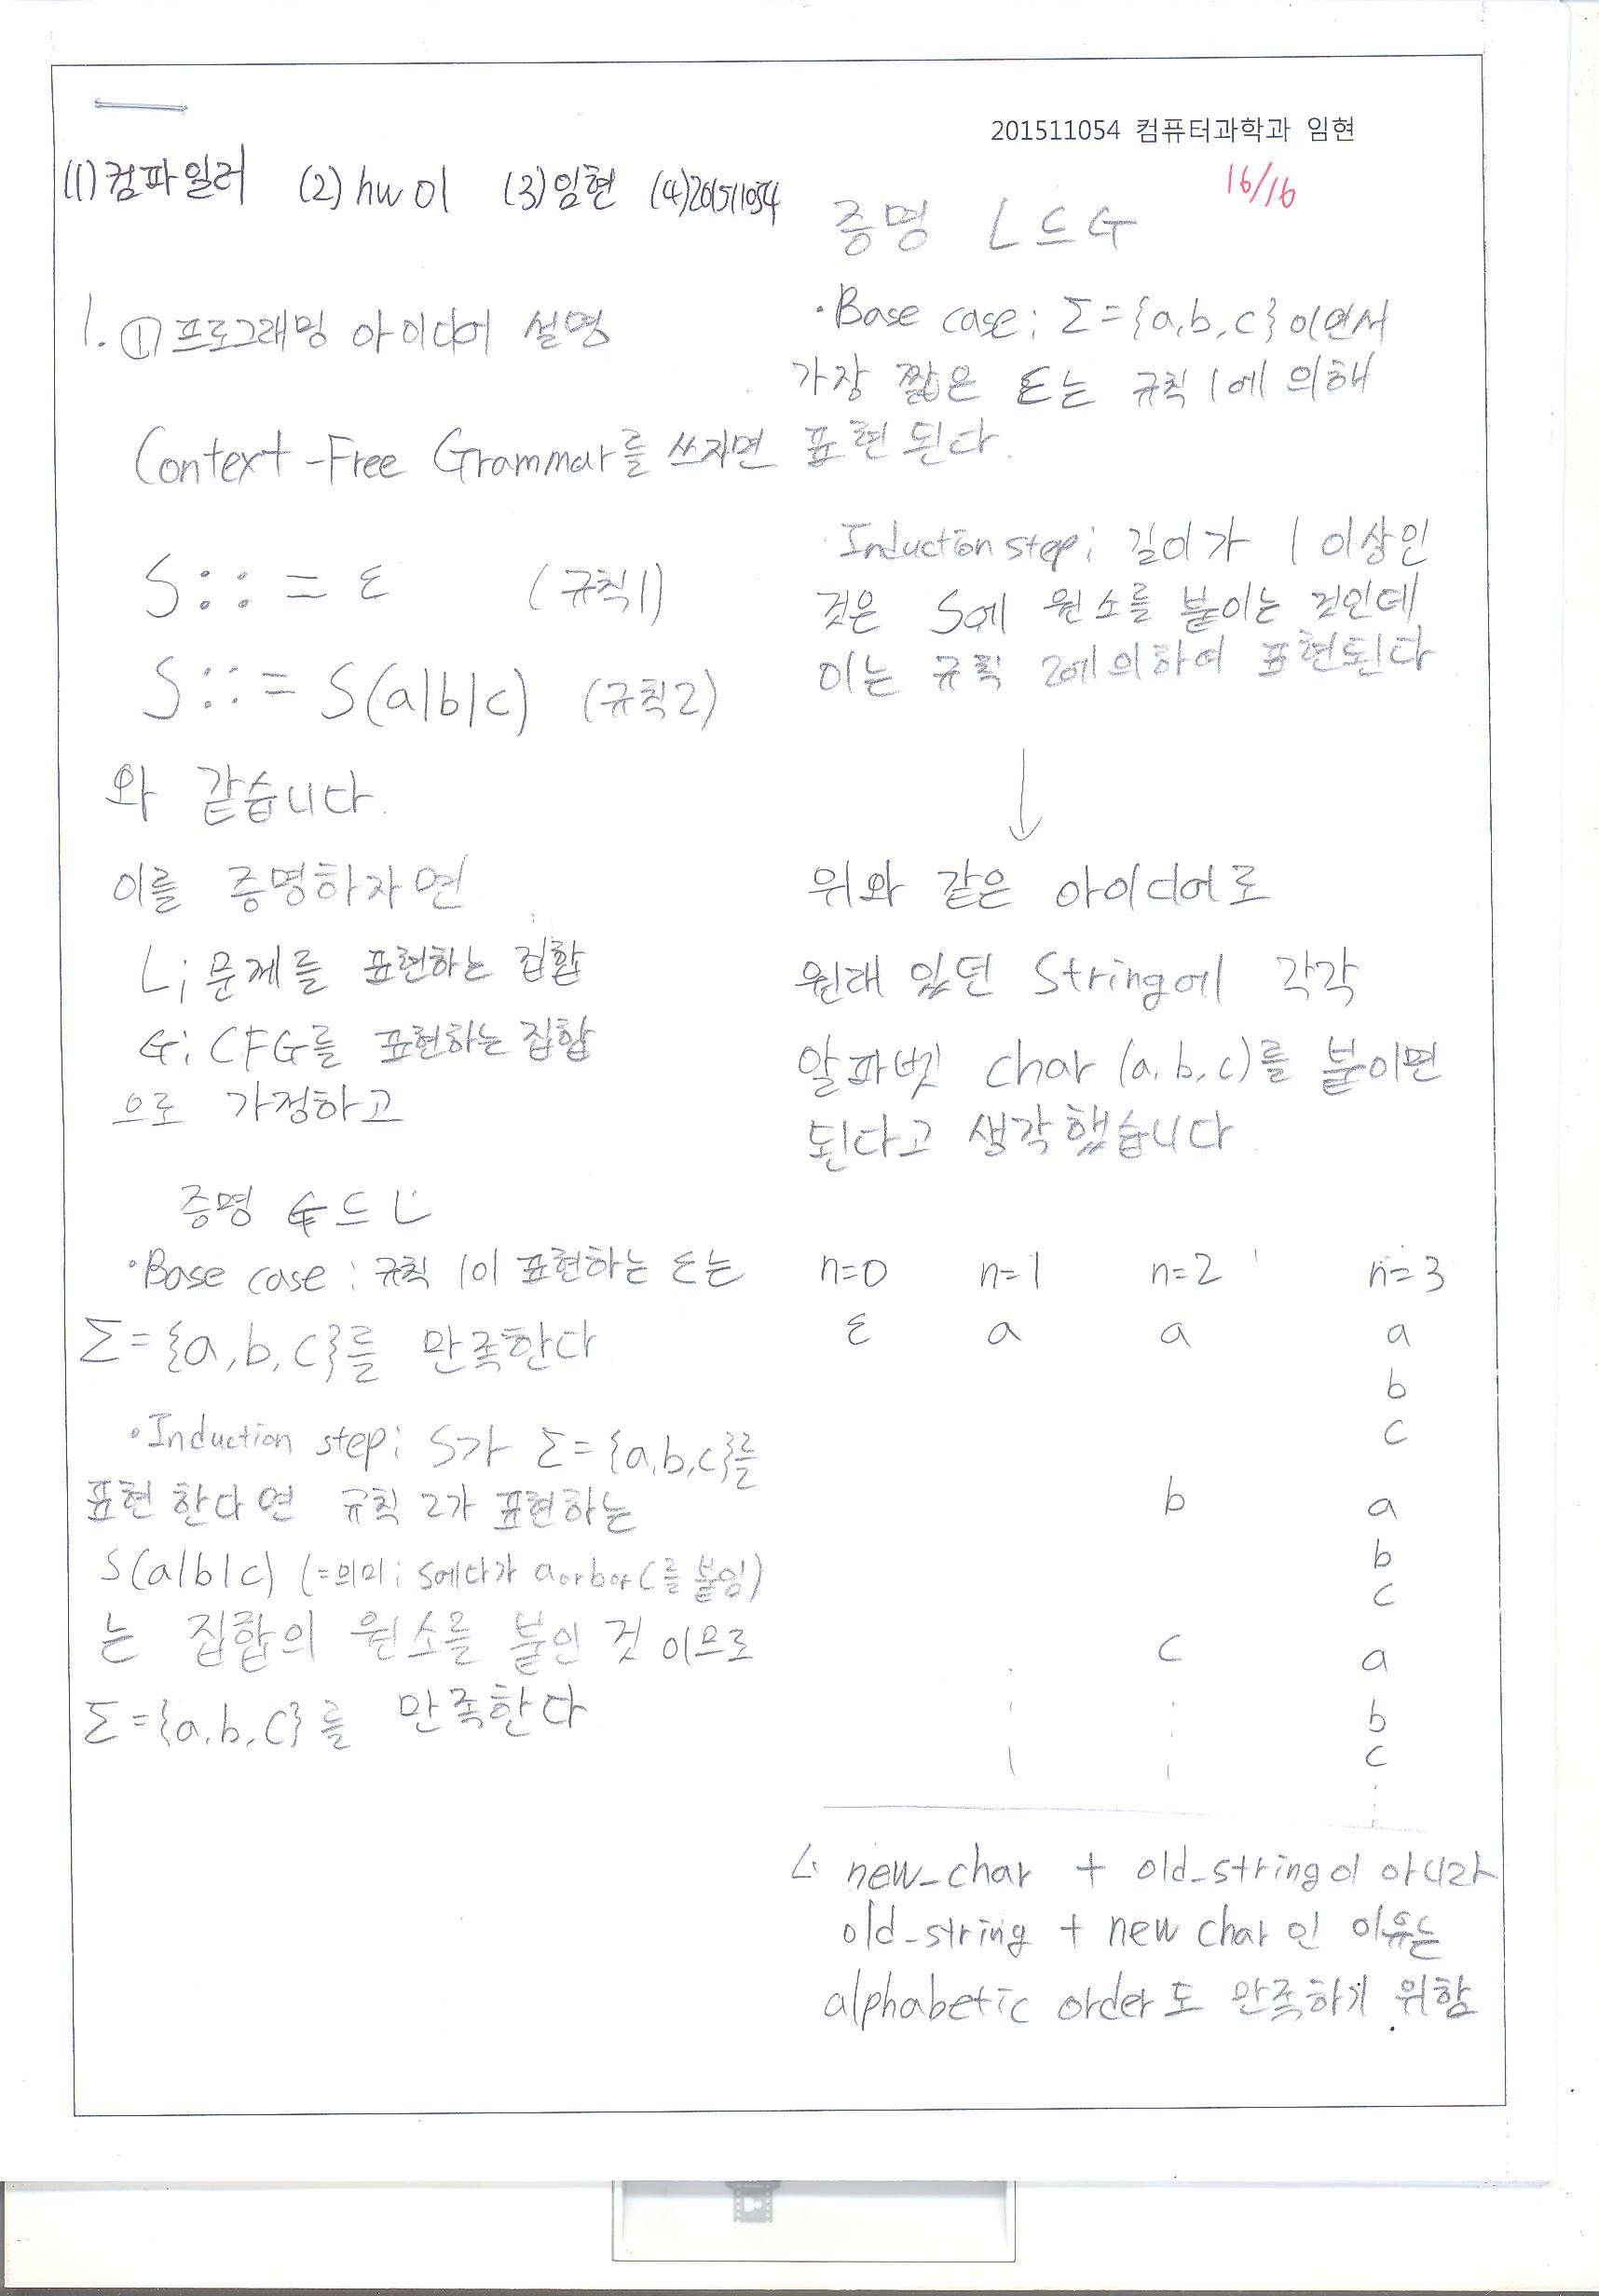 201511054 컴퓨터과학과 임현
16/16
(1)컴파일러 (2) hw 01 (3) 임현 (4)201511054
1. ① 프로그래밍 아이디어 설명
Context-Free Grammar를 쓰자면
S::= ε (규칙1)
S::= S(a|b|c) (규칙2)
와 같습니다.
이를 증명하자면
L; 문제를 표현하는 집합
G; CFG를 표현하는 집합
으로 가정하고
증명 G⊆L
·Base case : 규칙 1이 표현하는 ε는
Σ={a,b,c}를 만족한다
·Induction step; S가 Σ={a,b,c}를
표현 한다면 규칙 2가 표현하는
S(a|b|c) (=의미; S에다가 a or b or c를 붙임)
는 집합의 원소를 붙인 것 이므로
Σ={a,b,c}를 만족한다
증명 L⊆G
·Base case; Σ={a,b,c}이면서
가장 짧은 ε는 규칙 1에 의해
표현된다.
·Induction step; 길이가 1 이상인
것은 S에 원소를 붙이는 것인데
이는 규칙 2에 의하여 표현된다
↓
위와 같은 아이디어로
원래 있던 String에 각각
알파벳 char (a,b,c)를 붙이면
된다고 생각했습니다.
n=0 n=1 n=2 n=3
ε a a a
b
c
b a
b
c
c a
b
c
↳ new_char + old_string이 아니라
old_string + new char 인 이유는
alphabetic order도 만족하기 위함.